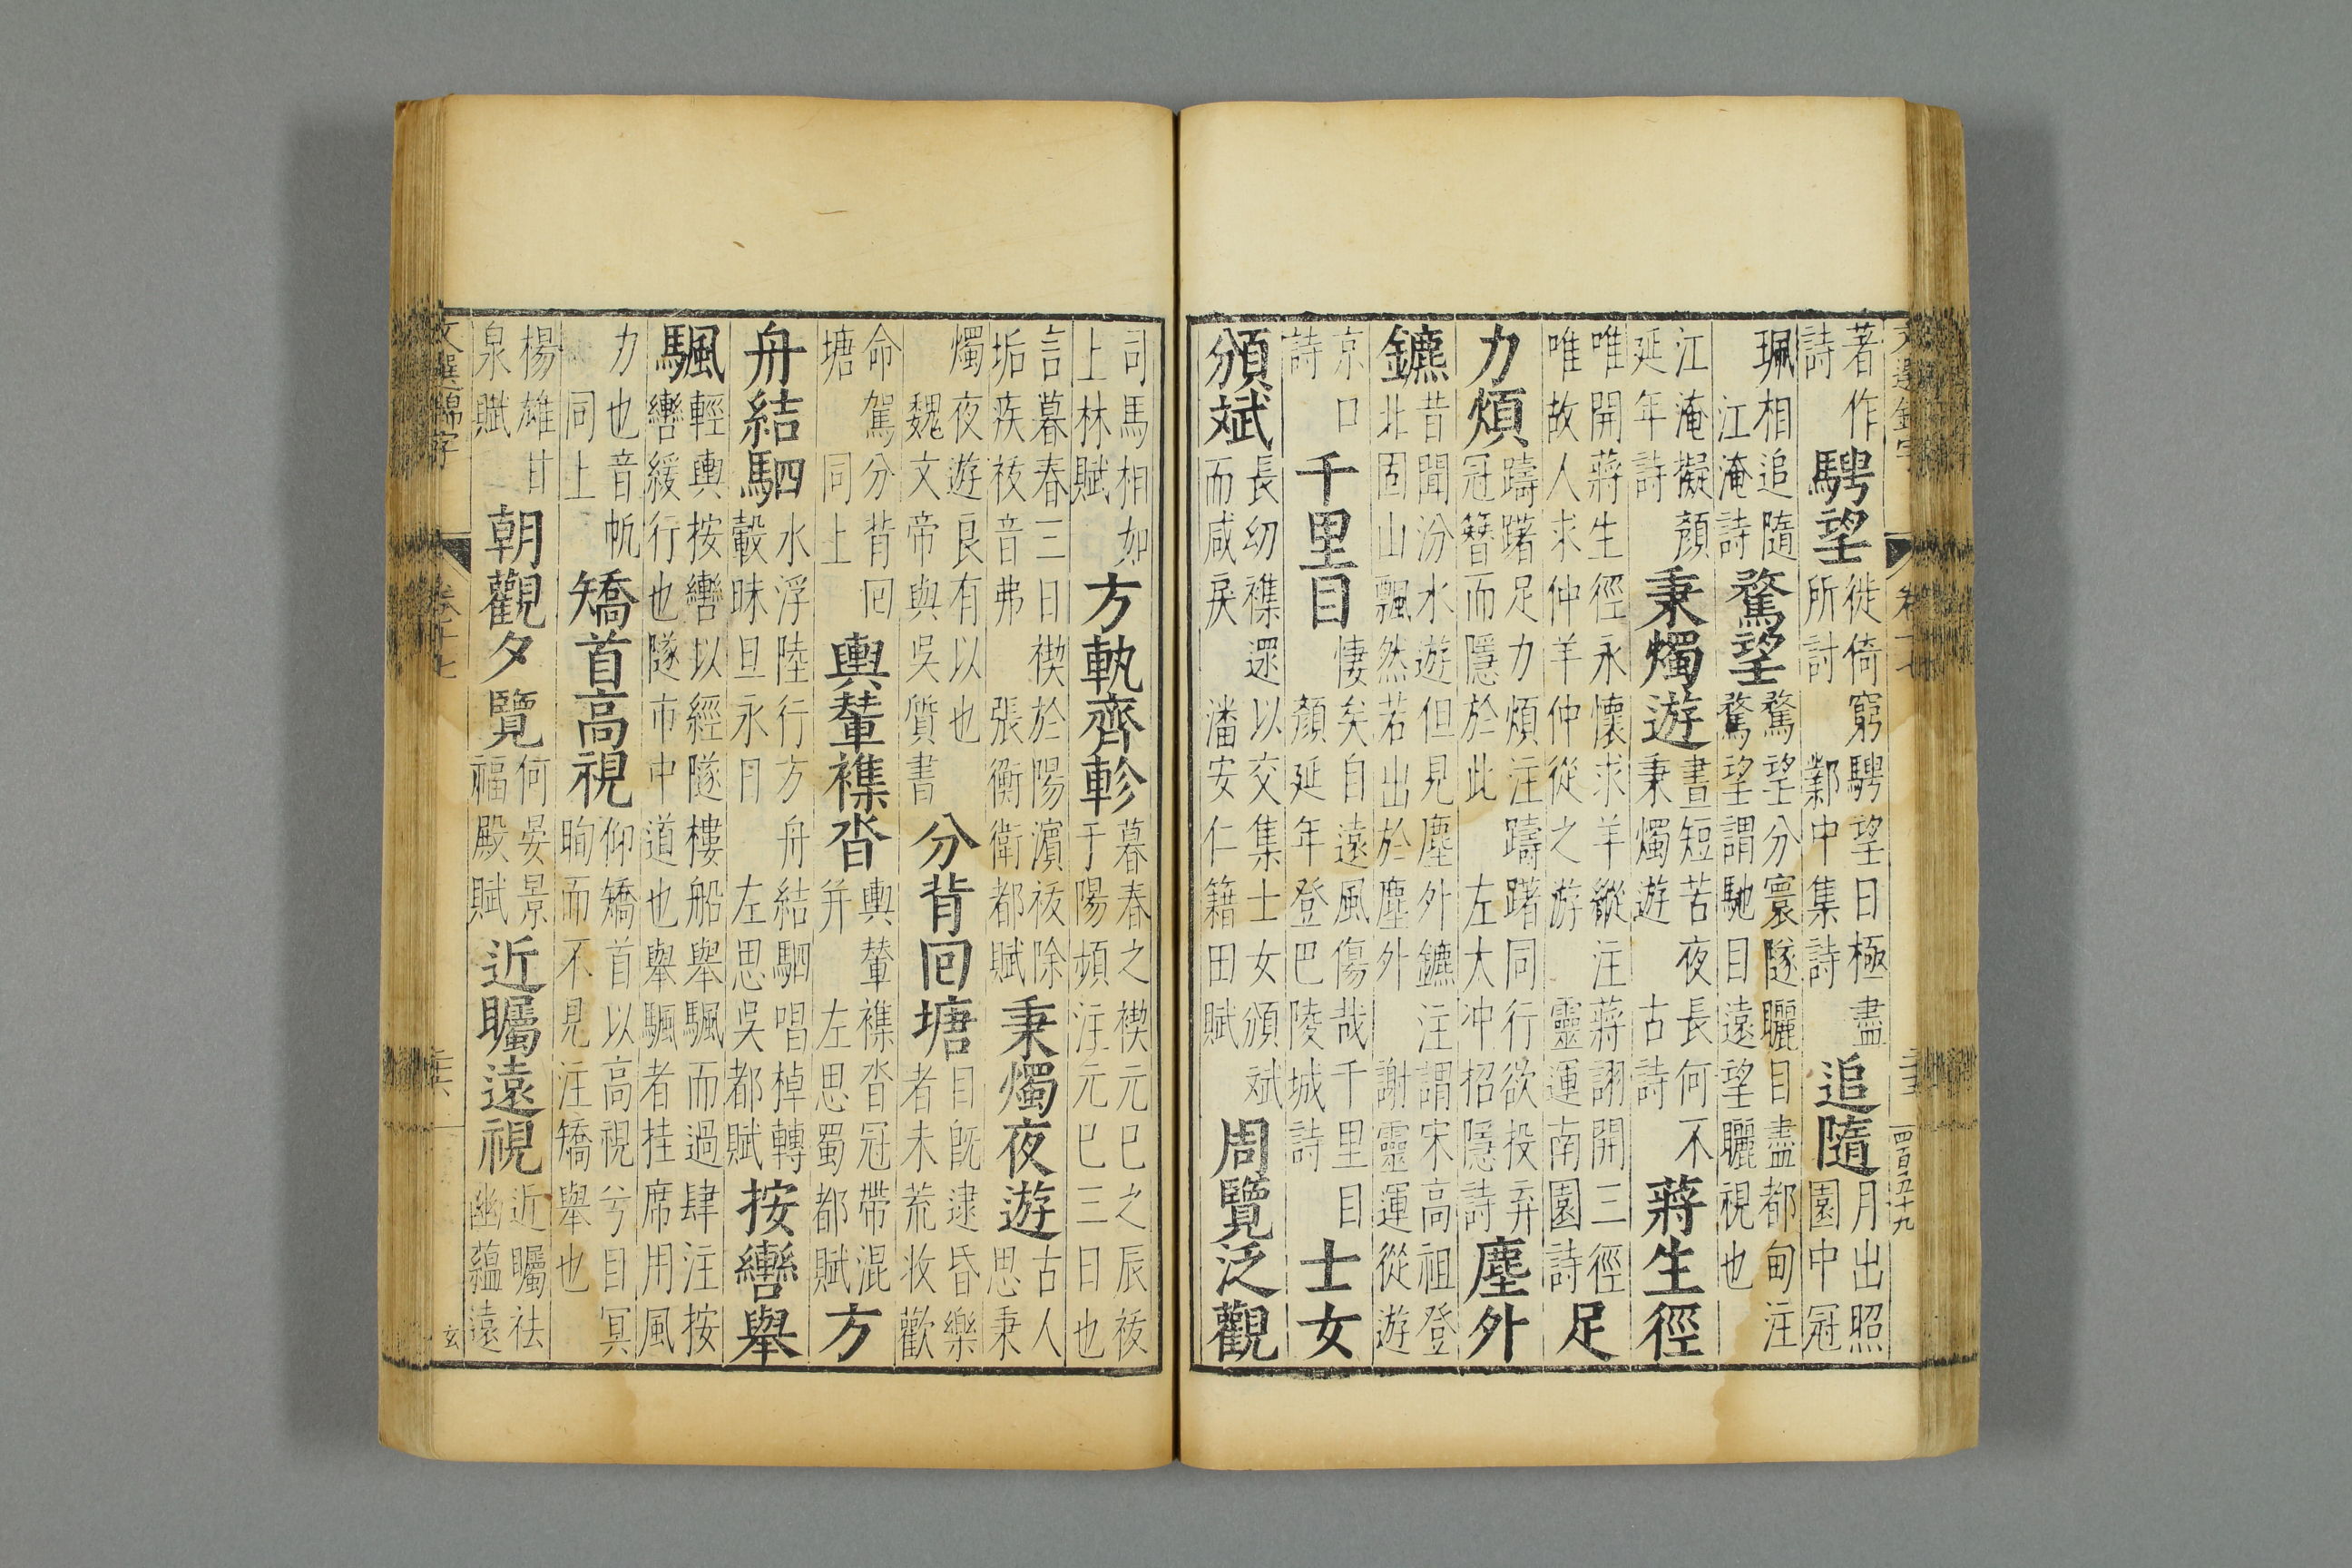 四百五十九
著作
詩
騁望
徙倚窮騁望日極盡
所討 鄴中集詩
追隨
月出照
園中冠
珮相追隨
江淹詩
騖望
騖望分寰隧曬目盡都甸注
騖望謂馳目遠望曬視也
江淹擬顏
延年詩
秉燭遊
晝短苦夜長何不
秉燭遊 古詩
蔣生徑
唯開蔣生徑永懷求羊縱注蔣詡開三徑
唯故人求仲羊仲從之游 靈運南園詩
足
力煩
躊躇足力煩注躊躇同行欲投弃
冠簪而隱於此 左太冲招隱詩
塵外
鑣
昔聞汾水遊但見塵外鑣注謂宋高祖登
北固山飄然若出於塵外 謝靈運從遊
京口
詩
千里目
悽矣自遠風傷哉千里目
顏延年登巴陵城詩
士女
頒斌
長幼襍還以交集士女頒斌
而咸戾 潘安仁籍田賦
周覽泛觀
司馬相如
上林賦
方軌齊軫
暮春之禊元巳之辰袚
于陽頻注元巳三日也
言暮春三日禊於陽濱袚除
垢疾袚音弗 張衡衛都賦
秉燭夜遊
古人
思秉
燭夜遊良有以也
魏文帝與吳質書
分背回塘
目旣逮昏樂
者未荒收歡
命駕分背回
塘 同上
輿輦襍沓
輿輦襍沓冠帶混
并 左思蜀都賦
方
舟結駟
水浮陸行方舟結駟唱棹轉
轂昧旦永日 左思吳都賦
按轡舉
颿
輕輿按轡以經隧樓船舉颿而過肆注按
轡緩行也隧市中道也舉颿者挂席用風
力也音帆
同上
矯首高視
仰矯首以高視兮目冥
眴而不見注矯舉也
楊雄甘
泉賦
朝觀夕覽
何晏景
福殿賦
近矚遠視
近矚祛
幽蘊遠
文選錦字 卷十七 玄